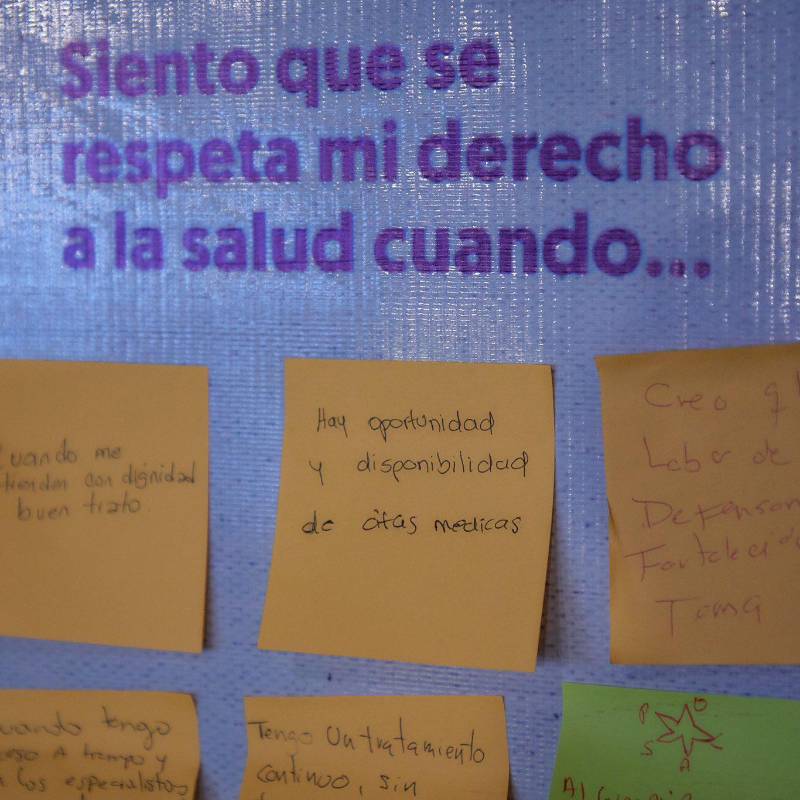 Siento que se
respeta mi derecho
a la salud cuando...
uando me
tienden con dignidad
buen trato.
Hay oportunidad
y disponibilidad
de citas medicas
Creo q
Labor de
Defensor
Fortalecid
Toma
uando tengo
eso A tiempo y
los especialistas
Tengo Un tratamiento
continuo, sin
P O
S A